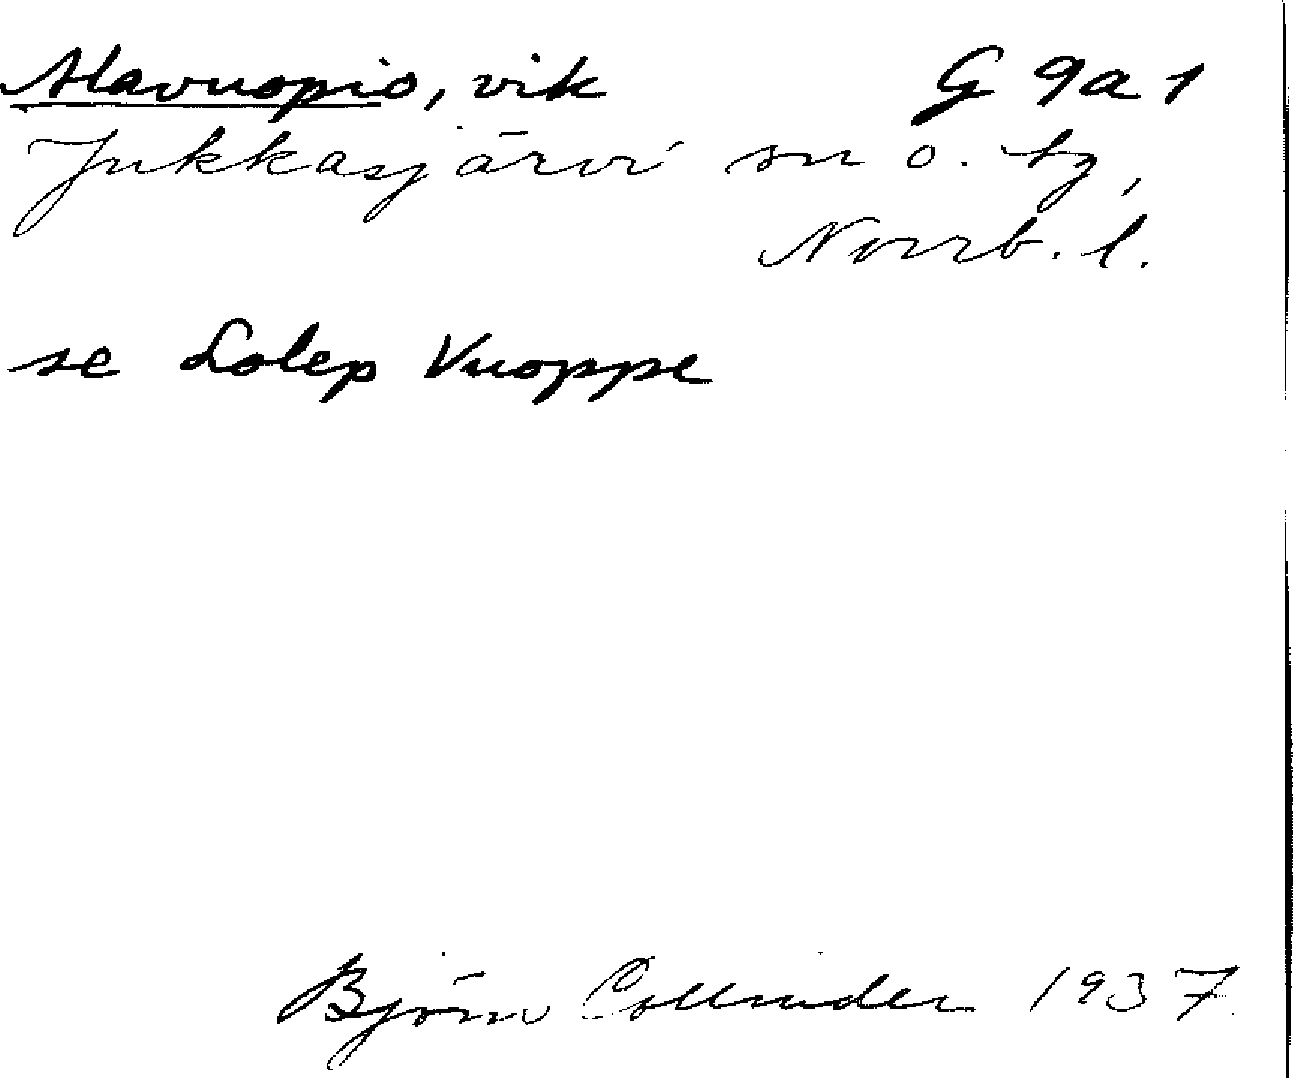 Alavuopio, vik G 9a1
Jukkasjärvi sn o. tg,
Norrb. l.
se Lolep Vuoppe
Björn Collinder 1937